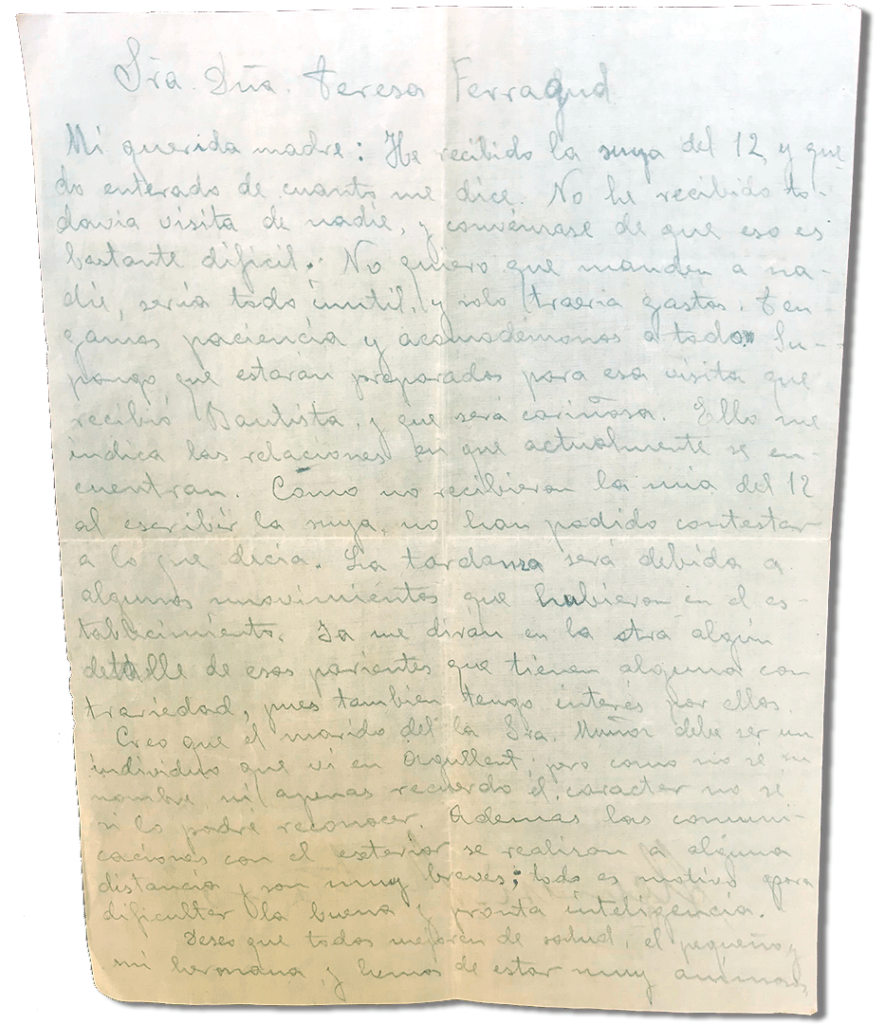 Sra. Dña. Teresa Ferragud
Mi querida madre: He recibido la suya del 12, y que-
do enterado de cuanto me dice. No he recibido to-
davia visita de nadie, y convénzase de que eso es
bastante dificil. No quiero que manden a na-
die, sería todo inutil, y solo traeria gastos. Ten
gamos paciencia y acomodemonos a todo. Su-
pongo que estarán preparados para esa visita que
recibió Bautista, y que será cariñosa. Ello me
indica las relaciones en que actualmente se en-
cuentran. Como no recibieron la mia del 12
al escribir la suya, no han podido contestar
a lo que decia. La tardanza será debida a
algunos movimientos que hubieron en el es-
tablecimiento. Ya me diran en la otra algún
detalle de esos parientes que tienen alguna con
trariedad, pues tambien tengo interés por ellos.
Creo que el marido del la Sra. Muñoz debe ser un
individuo que vi en Orgullent, pero como no sé su
nombre ni apenas recuerdo el caracter no sé
si lo podre reconocer. Ademas las comuni-
caciones con el exterior se realizan a alguna
distancia y son muy breves; todo es motivo para
dificultar la buena y pronta inteligencia.
Deseo que todos mejoren de salud, el pequeño, y
mi hermana, y hemos de estar muy animosos,